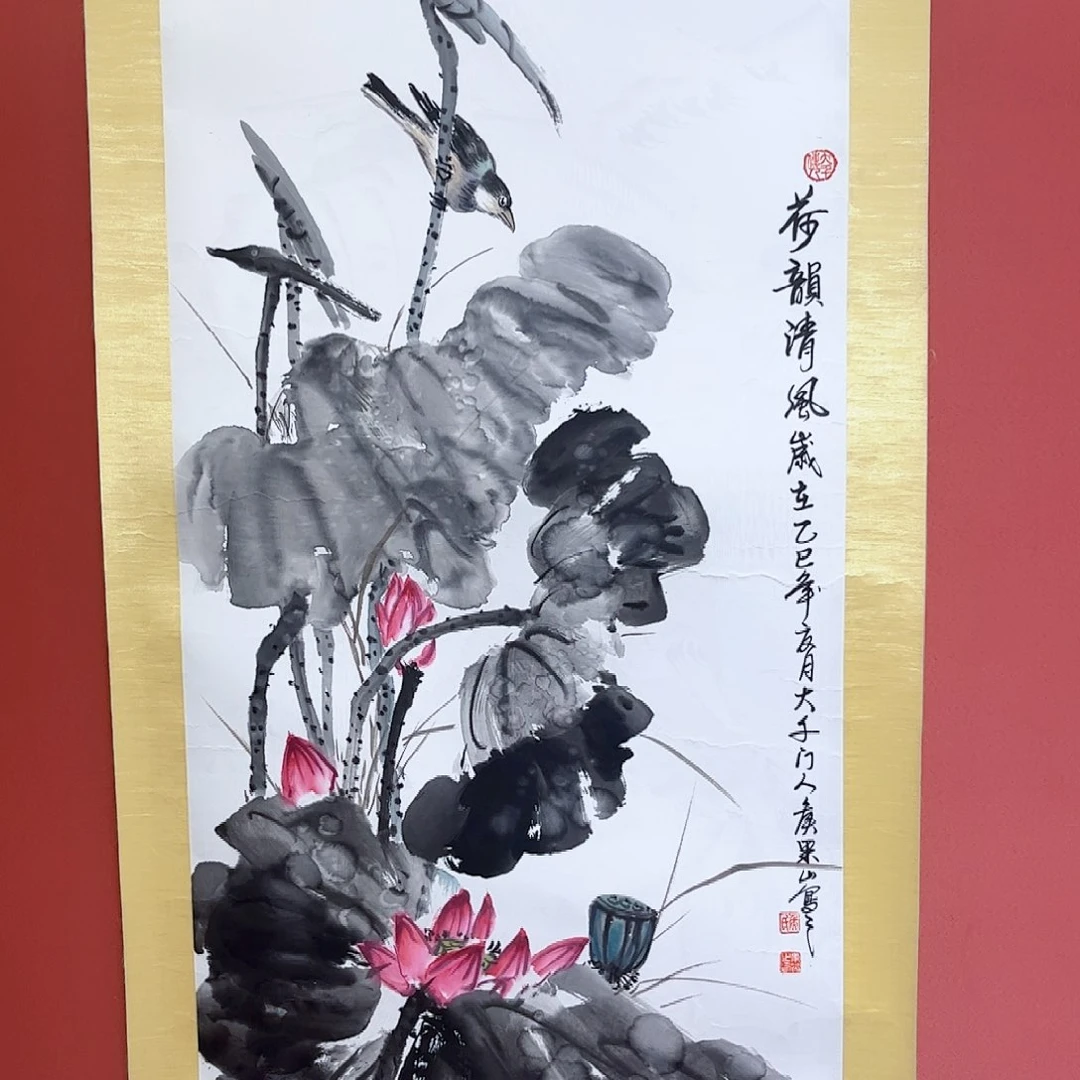 荷韻清風歲在乙巳年亥月大千门人侯果山寫之